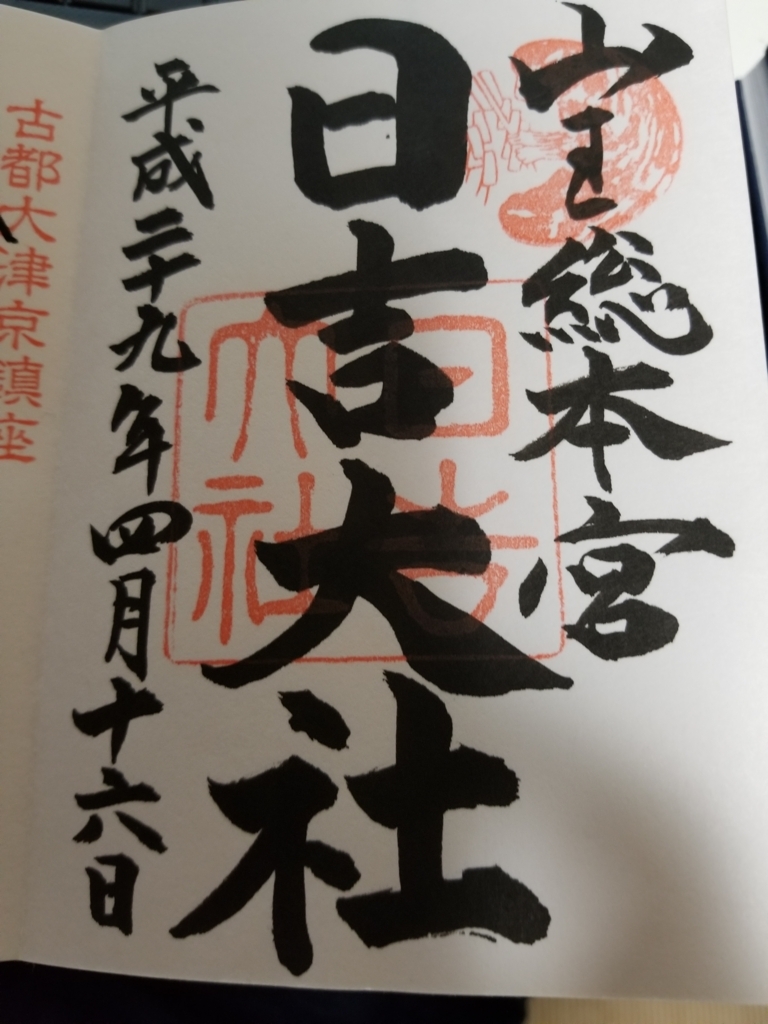 山王総本宮
日吉大社
日吉
大社
平成二十九年四月十六日
古都大津京鎮座